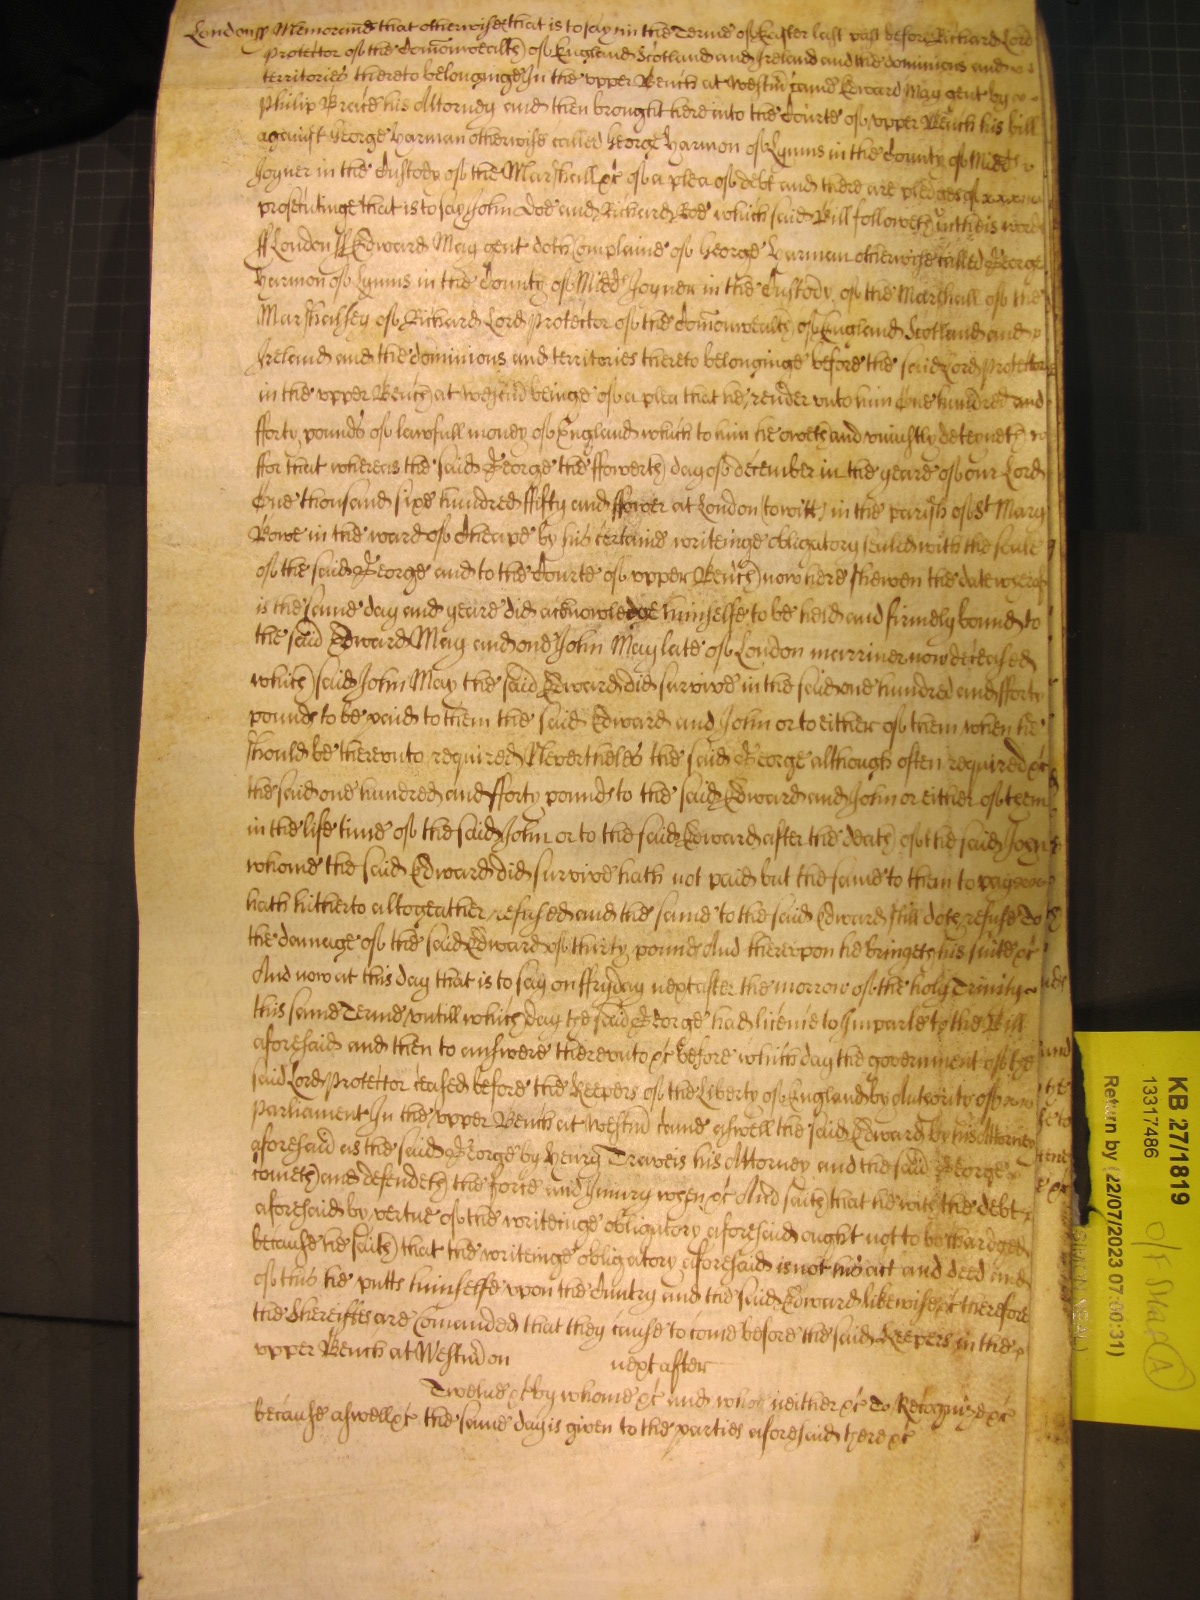 London ss Memorand that otherwise that is to say in the Terme of Easter last past before Richard Lord
Protector of the Comonwealth of England Scotland and Ireland and the dominions and
territories thereto belonginge In the upper Bench at Westm came Edward May gent by
Philip his Attorney and then brought here into the Courte of upper Bench his bill
against George Harman otherwise called George Harmon of Lymus in the County of Midd
Joyner in the Custody of the Marshall &c of a plea of debt and there are pledges of
prosecutinge that is to say John Doe and Richard Roe which said Bill followeth in theis words
ss London ss Edward May gent doth Complaine of George Harman otherwise called George
Harmon of Lymus in the County of Midd Joyner in the Custody of the Marshall of the
Marshalsey of Richard Lord Protector of the Comonwealth of England Scotland and
Ireland and the dominions and territories thereto belonginge before the said Lord Protector
in the upper Bench at Westm beinge of a plea that he render unto him One hundred and
fforty pounds of lawfull money of England which to him he oweth and uniustly deteyneth
ffor that whereas the said George the ffowerth day of December in the yeare of our Lord
One thousand sixe hundred ffifty and ffower at London (to witt) in the parish of St Mary
Bowe in the ward of Cheape by his certaine writeinge obligatory sealed with the seale
of the said George and to the Courte of upper Bench now here shewen the date whereof
is the same day and yeare did acknowledge himselfe to be held and firmely bound to
the said Edward May and one John May late of London marriner now deceased
which said John May the said Edward did survive in the said one hundred and fforty
pounds to be paid to them the said Edward and John or to either of them when he
should be thereunto required Neverthelesse the said George although often required &c
the said one hundred and fforty pounds to the said Edward and John or either of them
in the life time of the said John or to the said Edward after the death of the said John
whome the said Edward did survive hath not paid but the same to them to pay
hath hitherto altogeather refused and the same to the said Edward still doth refuse To
the damage of the said Edward of thirty pounds And thereupon he bringeth his suite &c
And now at this day that is to say on ffryday next after the morrow of the holy Trinity
this same Terme untill which day the said George had licence to Imparle to the Bill
aforesaid and then to answere thereunto &c before which day the government of the
said Lord Protector ceased before the Keepers of the Liberty of England by Authority of
Parliament In the upper Bench at Westm came aswell the said Edward by his Attorney
aforesaid as the said George by Henry Traveis his Attorney and the said George
cometh and defendeth the force and Iniury when &c And saith that he with the debt
aforesaid by vertue of the writeinge obligatory aforesaid ought not to be chardged
because he saith that the writeinge obligatory aforesaid is not his act and deed and
of this he putts himselfe upon the Cuntry and the said Edward likewise &c therefore
the Shereiffes are Comanded that they cause to come before the said Keepers in the
upper Bench at Westm on next after
Twelve &c by whome &c and who neither &c To Recognize &c
because aswell &c the same day is given to the parties aforesaid there &c
KB 27/1819
13317486
Return by (22/07/2023 07:00:31)